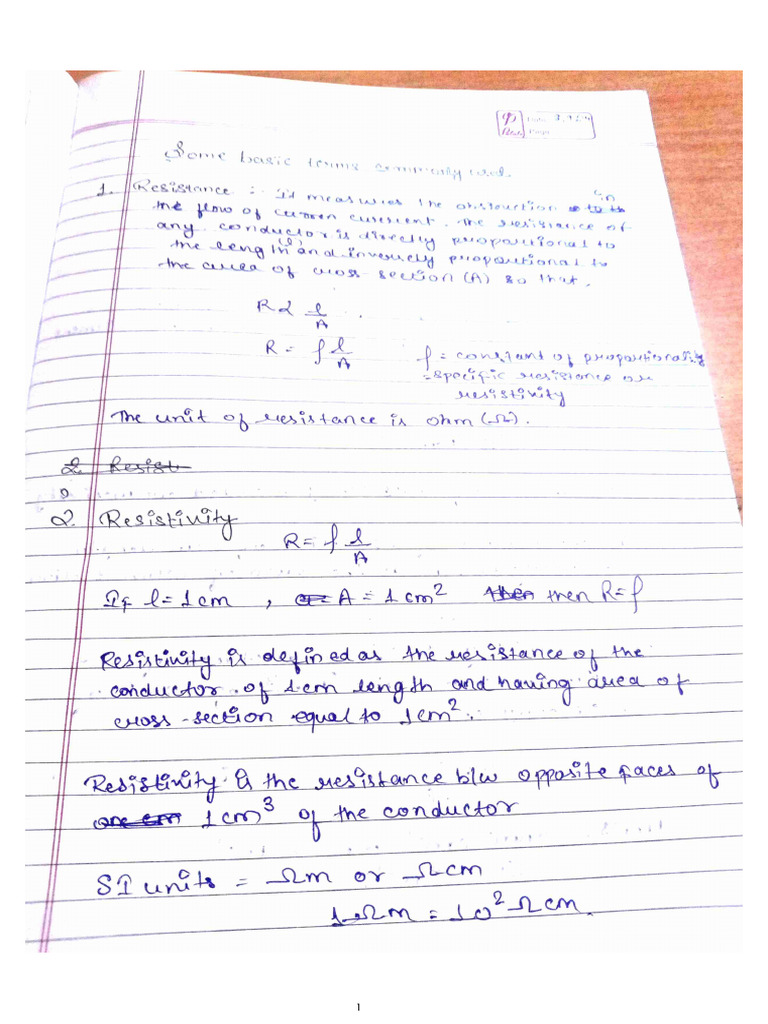 Date 3,9,24
Page
Some basic terms commonly used
1. Resistance :- It measures the obstruction to in
the flow of curren current. The resistance of
any conductor is directly proportional to
the length (l) and inversely proportional to
the area of cross section (A) so that,
R α l/A
R = ρ l/A ρ = constant of proportionality
= specific resistance or
resistivity
The unit of resistance is ohm (Ω).
2. Resist
2. Resistivity
R = ρ l/A
If l = 1cm , a = A = 1 cm² then then R = ρ
Resistivity is defined as the resistance of the
conductor of 1cm length and having area of
cross-section equal to 1cm².
Resistivity is the resistance b/w opposite faces of
one cm 1cm³ of the conductor
SI units = Ωm or Ωcm
1Ωm = 10² Ωcm.
1